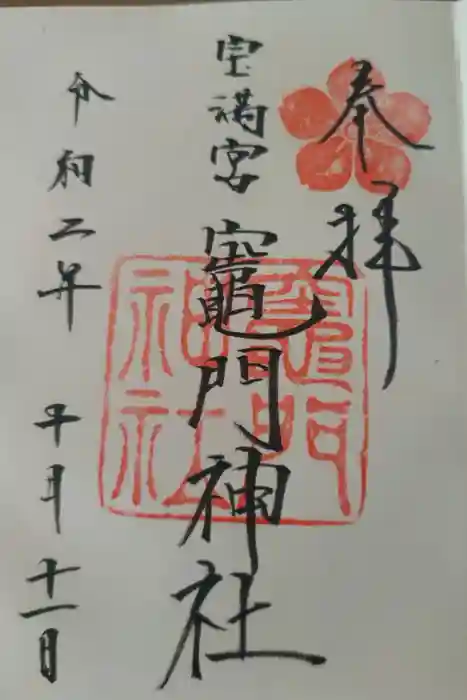 奉拝
宝満宮 竈門神社
令和二年 月十一日
竈門
神社